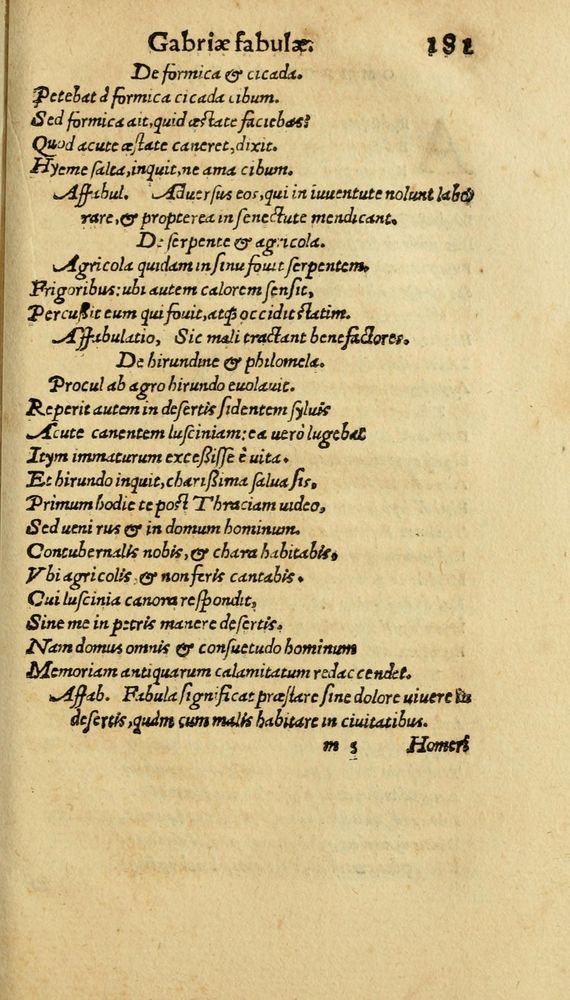 Gabriæ fabulæ. 181
De formica & cicada.
Petebat à formica cicada cibum.
Sed formica ait, quid æstate faciebas?
Quod acute æstate caneret, dixit.
Hyeme salta, inquit, ne ama cibum.
Affabul. Aduersus eos, qui in iuuentute nolunt labo
rare, & propterea in senectute mendicant.
De serpente & agricola.
Agricola quidam in sinu fouit serpentem,
Frigoribus: ubi autem calorem sensit,
Percußit eum qui fouit, atq; occidit statim.
Affabulatio, Sic mali tractant benefactores.
De hirundine & philomela.
Procul ab agro hirundo euolauit.
Reperit autem in desertis sidentem syluis
Acute canentem lusciniam: ea uerò lugebat
Itym immaturum exceßisse è uita.
Et hirundo inquit, charißima salua sis,
Primum hodie te post Thraciam uideo,
Sed ueni rus & in domum hominum.
Contubernalis nobis, & chara habitabis,
Vbi agricolis & non feris cantabis.
Cui luscinia canora respondit,
Sine me in petris manere desertis.
Nam domus omnis & consuetudo hominum
Memoriam antiquarum calamitatum redaccendet.
Affab. Fabula significat præstare sine dolore uiuere in
desertis, quàm cum malis habitare in ciuitatibus.
m 3 Homeri